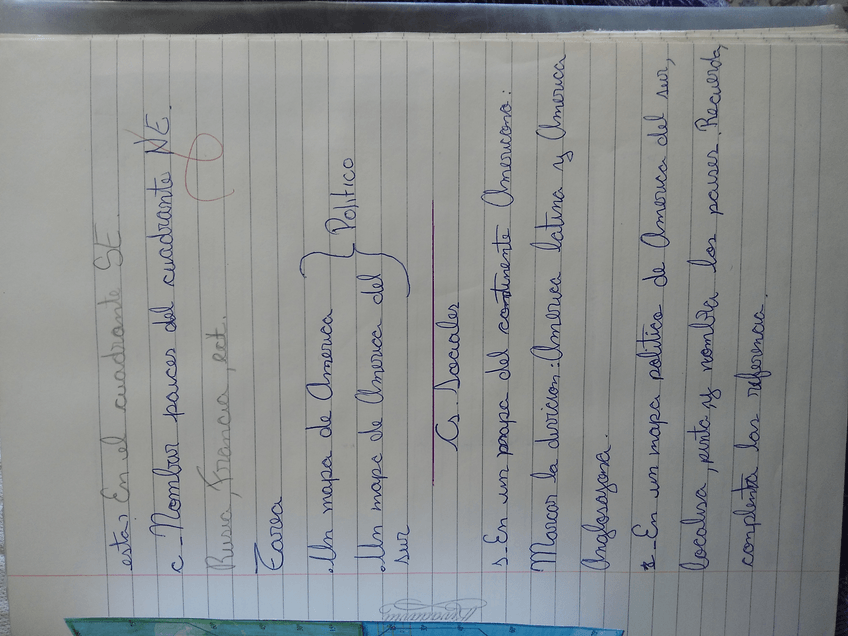 estas En el cuadrante SE.
c_Nombrar paices del cuadrante NE.
Rusia, Francia, ect.
Tarea
•Un mapa de America
•Un mapa de America del
sur
} Politico
Cs. Sociales
1_En un mapa del continente Americano:
Marcar la divicion: America latina y America
Anglosajona.
*_En un mapa politico de America del sur,
localisa, pinta y nombra los paises. Recuerda,
completa las referencia.